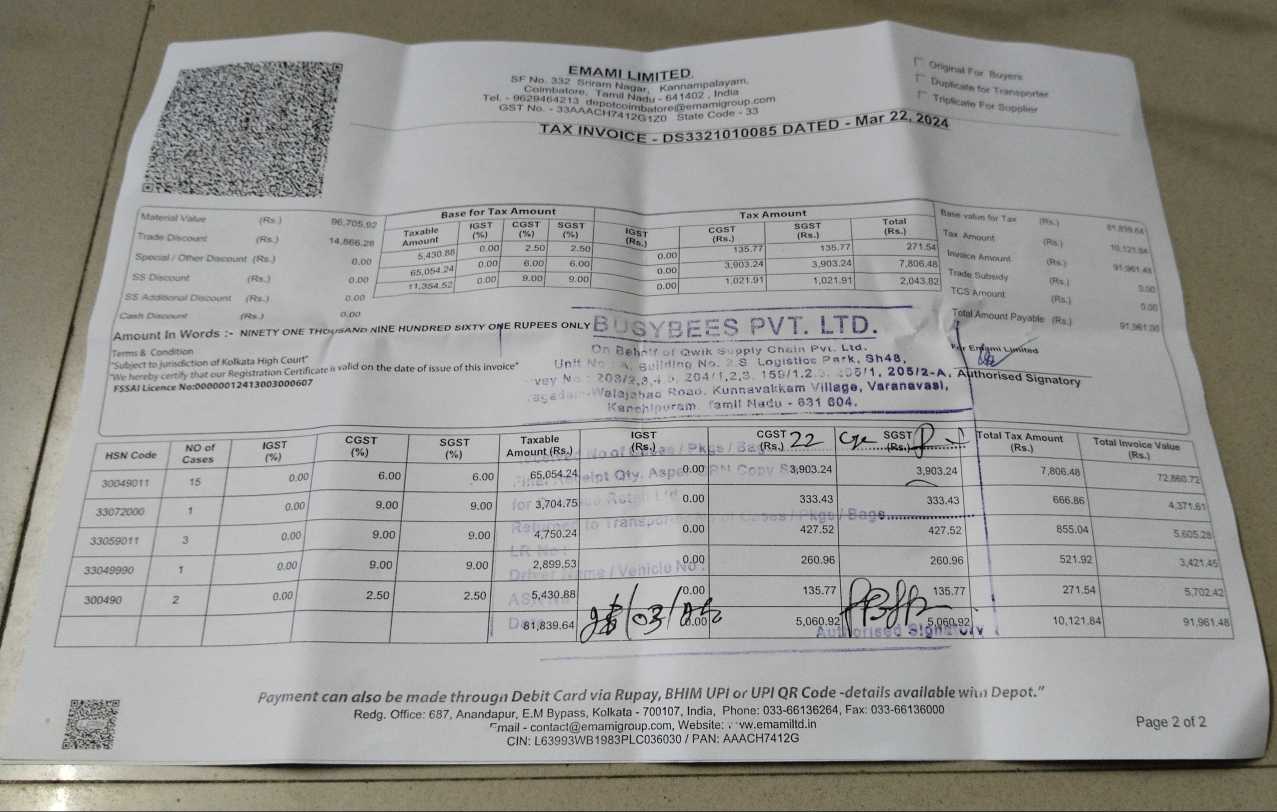 EMAMI LIMITED
SF No. 332 Sriram Nagar, Kannampalayam,
Coimbatore, Tamil Nadu - 641402 , India
Tel. - 9629464213 depotcoimbatore@emamigroup.com
GST No. - 33AAACH7412G1Z0 State Code - 33
Original For Buyers
Duplicate for Transporter
Triplicate For Supplier
TAX INVOICE - DS3321010085 DATED - Mar 22, 2024
Material Value (Rs.) 96,705.92
Trade Discount (Rs.) 14,866.28
Special / Other Discount (Rs.) 0.00
SS Discount (Rs.) 0.00
SS Additional Discount (Rs.) 0.00
Cash Discount (Rs.) 0.00
Base for Tax Amount Tax Amount
Taxable Amount IGST (%) CGST (%) SGST (%) IGST (Rs.) CGST (Rs.) SGST (Rs.) Total (Rs.)
5,430.88 0.00 2.50 2.50 0.00 135.77 135.77 271.54
65,054.24 0.00 6.00 6.00 0.00 3,903.24 3,903.24 7,806.48
11,354.52 0.00 9.00 9.00 0.00 1,021.91 1,021.91 2,043.82
Base value for Tax (Rs.) 81,839.64
Tax Amount (Rs.) 10,121.84
Invoice Amount (Rs.) 91,961.48
Trade Subsidy (Rs.) 0.00
TCS Amount (Rs.) 0.00
Total Amount Payable (Rs.) 91,961.00
Amount In Words :- NINETY ONE THOUSAND NINE HUNDRED SIXTY ONE RUPEES ONLY
Terms & Condition
"Subject to jurisdiction of Kolkata High Court"
"We hereby certify that our Registration Certificate is valid on the date of issue of this invoice"
FSSAI Licence No:00000012413003000607
BUSYBEES PVT. LTD.
On Behalf of Qwik Supply Chain Pvt. Ltd.
Building No. 2 Logistics Park, Sh48,
203/2,3,4,5, 204/1,2,3, 159/1,2,3, 205/1, 205/2-A,
Walajabad Road, Kunnavakkam Village, Varanavasi,
Kanchipuram, Tamil Nadu - 631 604.
For Emami Limited
Authorised Signatory
HSN Code NO of Cases IGST (%) CGST (%) SGST (%) Taxable Amount (Rs.) IGST (Rs.) CGST (Rs.) SGST (Rs.) Total Tax Amount (Rs.) Total Invoice Value (Rs.)
22
30049011 15 0.00 6.00 6.00 65,054.24 0.00 3,903.24 3,903.24 7,806.48 72,860.72
33072000 1 0.00 9.00 9.00 3,704.75 0.00 333.43 333.43 666.86 4,371.61
33059011 3 0.00 9.00 9.00 4,750.24 0.00 427.52 427.52 855.04 5,605.28
33049990 1 0.00 9.00 9.00 2,899.53 0.00 260.96 260.96 521.92 3,421.45
300490 2 0.00 2.50 2.50 5,430.88 0.00 135.77 135.77 271.54 5,702.42
81,839.64 0.00 5,060.92 5,060.92 10,121.84 91,961.48
No of Cases / Pkgs / Bags
Receipt Qty. Copy
Returned to Transporter of Cases / Pkgs / Bags
LR No :
Driver Name / Vehicle No :
Authorised Signatory
Payment can also be made through Debit Card via Rupay, BHIM UPI or UPI QR Code -details available with Depot."
Redg. Office: 687, Anandapur, E.M Bypass, Kolkata - 700107, India, Phone: 033-66136264, Fax: 033-66136000
Email - contact@emamigroup.com, Website: www.emamiltd.in
CIN: L63993WB1983PLC036030 / PAN: AAACH7412G
Page 2 of 2